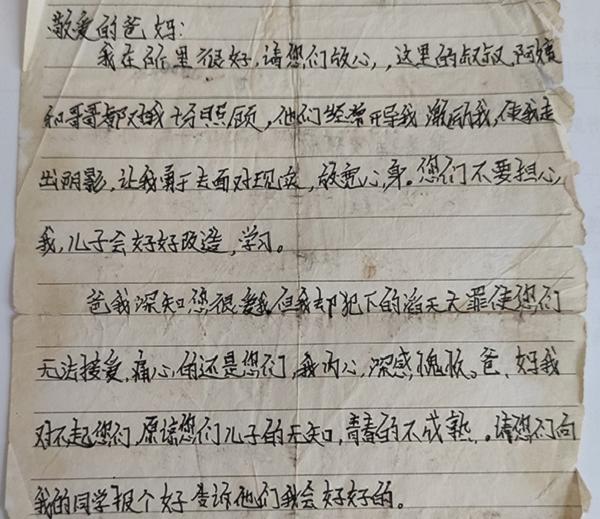 敬爱的爸、妈:
我在所里很好,请您们放心,,这里的叔叔,阿姨
和哥哥都对我十分照顾,他们经常开导我 激励我,使我走
出阴影,让我勇于去面对现实,放宽心,身。您们不要担心
我,儿子会好好改造,学习。
爸我深知您很爱我但我却犯下的滔天大罪使您们
无法接受,痛心,的还是您们,我内心,深感愧疚。爸、妈我
对不起您们 原谅您们儿子的无知,青春的不成熟,。请您们向
我的同学报个好 告诉他们我会好好的。